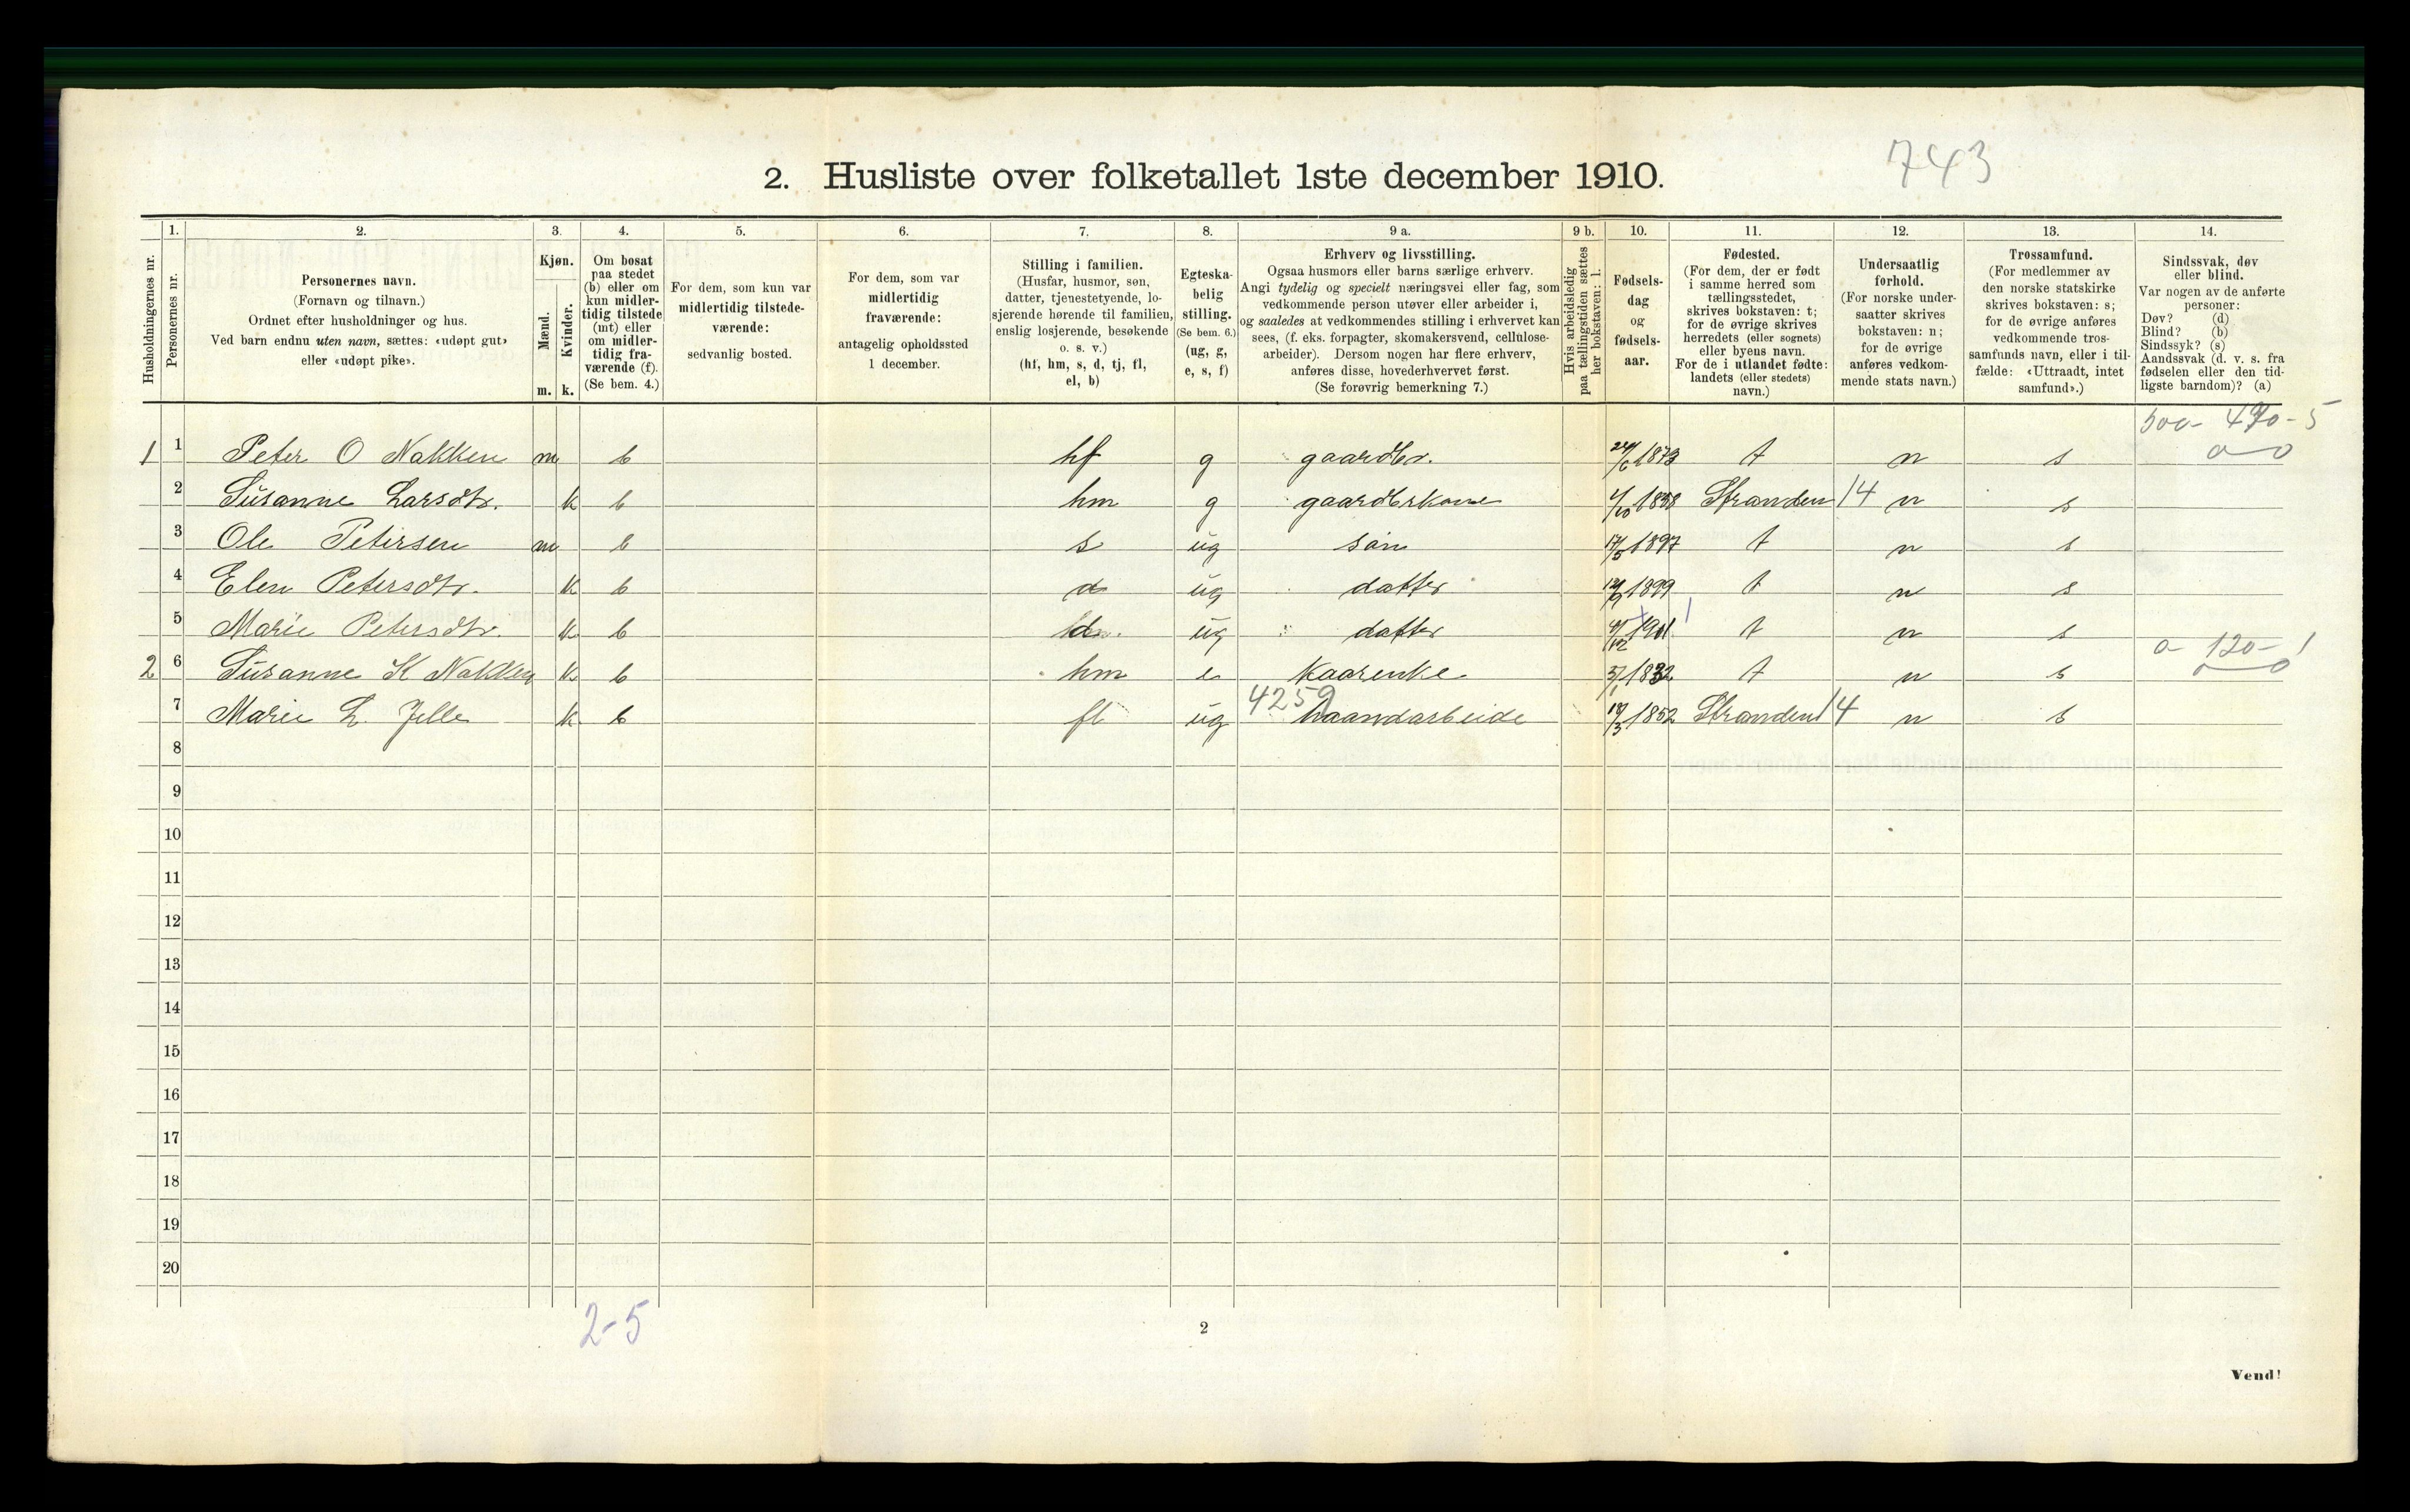 743
2. Husliste over folketallet 1ste december 1910.
Husholdningernes nr.
1.
Personernes nr.
2.
Personernes navn.
(Fornavn og tilnavn.)
Ordnet efter husholdninger og hus.
Ved barn endnu uten navn, sættes: «udøpt gut»
eller «udøpt pike».
3.
Kjøn.
Mænd.
m.
Kvinder.
k.
4.
Om bosat
paa stedet
(b) eller om
kun midler-
tidig tilstede
(mt) eller
om midler-
tidig fra-
værende (f).
(Se bem. 4.)
5.
For dem, som kun var
midlertidig tilstede-
værende:
sedvanlig bosted.
6.
For dem, som var
midlertidig
fraværende:
antagelig opholdssted
1 december.
7.
Stilling i familien.
(Husfar, husmor, søn,
datter, tjenestetyende, lo-
sjerende hørende til familien,
enslig losjerende, besøkende
o. s. v.)
(hf, hm, s, d, tj, fl,
el, b)
8.
Egteska-
belig
stilling.
(Se bem. 6.)
(ug, g,
e, s, f)
9 a.
Erhverv og livsstilling.
Ogsaa husmors eller barns særlige erhverv.
Angi tydelig og specielt næringsvei eller fag, som
vedkommende person utøver eller arbeider i,
og saaledes at vedkommendes stilling i erhvervet kan
sees, (f. eks. forpagter, skomakersvend, cellulose-
arbeider). Dersom nogen har flere erhverv,
anføres disse, hovederhvervet først.
(Se forøvrig bemerkning 7.)
9 b.
Hvis arbeidsledig
paa tællingstiden sættes
her bokstaven: l.
10.
Fødsels-
dag
og
fødsels-
aar.
11.
Fødested.
(For dem, der er født
i samme herred som
tællingsstedet,
skrives bokstaven: t;
for de øvrige skrives
herredets (eller sognets)
eller byens navn.
For de i utlandet fødte:
landets (eller stedets)
navn.)
12.
Undersaatlig
forhold.
(For norske under-
saatter skrives
bokstaven: n;
for de øvrige
anføres vedkom-
mende stats navn.)
13.
Trossamfund.
(For medlemmer av
den norske statskirke
skrives bokstaven: s;
for de øvrige anføres
vedkommende tros-
samfunds navn, eller i til-
fælde: «Uttraadt, intet
samfund».)
14.
Sindssvak, døv
eller blind.
Var nogen av de anførte
personer:
Døv? (d)
Blind? (b)
Sindssyk? (s)
Aandssvak (d. v. s. fra
fødselen eller den tid-
ligste barndom)? (a)
1 1 Peter O Nakken m b hf g gaardbr. 1873 t n s
0-0
2 Susanne Larsdtr. k b hm g gaardbrkone Stranden 14 n s
3 Ole Petersen m b s ug søn 17/5 1897 t n s
4 Elen Petersdtr. k b d ug datter 1899 t n s
5 Marie Petersdtr. k b d ug datter 1901 t n s
0- 120- 1
2 6 Susanne K Nakken k b hm e Kaarenke 1832 t n s 0-0
4259
7 Marie L. Jelle k b fl ug haandarbeide 1852 Stranden 14 n s
8
9
10
11
12
13
14
15
16
17
18
19
20
2-5
2
Vend!